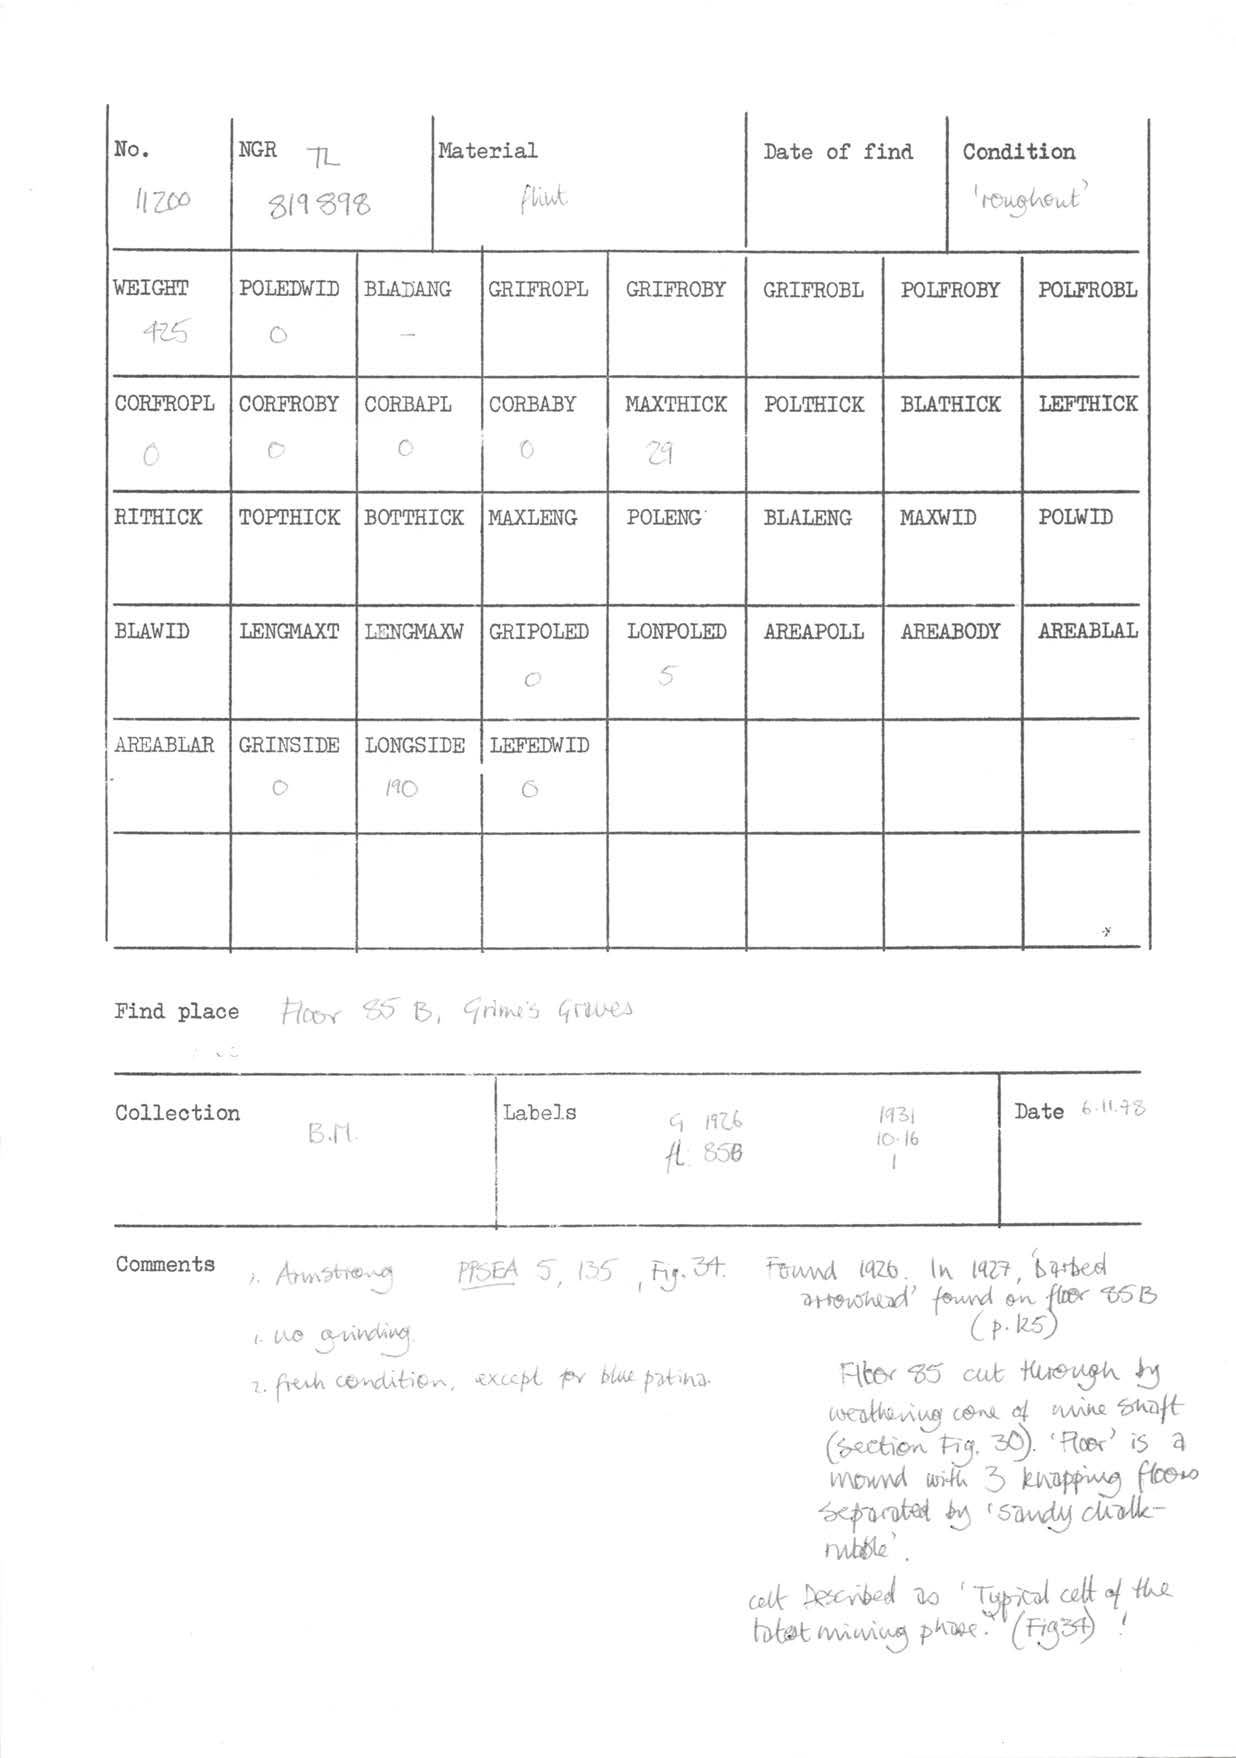 No. NGR TL Material Date of find Condition
11200 819898 flint 'roughout'
WEIGHT POLEDWID BLADANG GRIFROPL GRIFROBY GRIFROBL POLFROBY POLFROBL
425 0 –
CORFROPL CORFROBY CORBAPL CORBABY MAXTHICK POLTHICK BLATHICK LEFTHICK
0 0 0 0 29
RITHICK TOPTHICK BOTTHICK MAXLENG POLENG BLALENG MAXWID POLWID
BLAWID LENGMAXT LENGMAXW GRIPOLED LONPOLED AREAPOLL AREABODY AREABLAL
0 5
AREABLAR GRINSIDE LONGSIDE LEFEDWID
0 190 0
Find place Floor 85 B, Grime's Graves
Collection Labels Date 6.11.78
B.M. G 1926 1931
fl. 85B 10-16
1
Comments 1. Armstrong PPSEA 5, 135, Fig. 34. Found 1926. In 1927, 'barbed
arrowhead' found on floor 85B
(p.125)
1. no grinding.
2. fresh condition, except for blue patina.
Floor 85 cut through by
weathering cone of mine shaft
(section Fig. 30). 'Floor' is a
mound with 3 knapping floors
separated by 'sandy chalk-
rubble'.
celt Described as 'Typical celt of the
latest mining phase." (Fig34) !